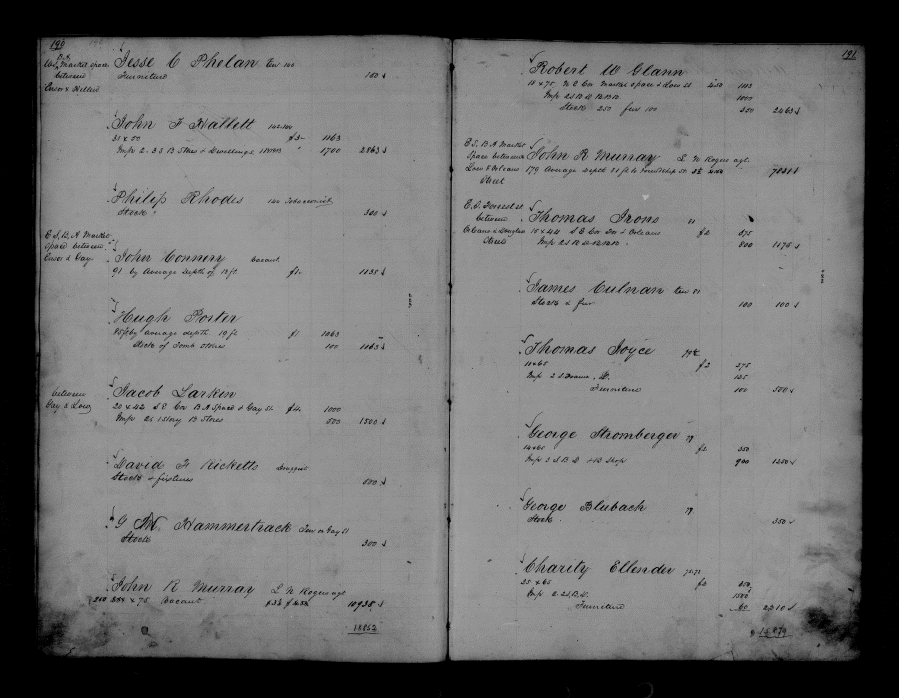 190
W.S. Market space
between
Ensor & Hillen
Jesse C Phelan Ten 140
Furniture 100
John F Hatlett 142.144
31 x 50 f3- 1163
Imps 2-3 S B Stores & Dwellings 1700 2863
Philip Rhodes 140 Tobacconist
Stock " 300
E.S. B. A Market
Space between
Ensor & Gay
John Connery Vacant
91 by Average Depth of 12 ft f1- 1135
Hugh Porter
85 ft by average depth 19 ft f1 1063
Stock of Tomb stones 100 1163
between
Gay & Low
Jacob Larkin
20 x 42 S E Cor B A Space & Gay St. f4. 1000
Imps 2 S B Stores 500 1500
David F Ricketts Druggist
Stock & fixtures 500
G Hammertrack Ten on Gay St
Stock 300
John R Murray L N Rogers agt
x 75 Vacant 10935
18862
191
Robert W Glann
18 x 75 N E Cor Market Space & Low St 1113
Imps 2 S B D 1000
Stock 250 fur 100 350 2463
E.S. B A Market
Space between
Low & Orleans
Street
John R Murray L N Rogers agt.
179 Average Depth 81 ft to Front St 7831
E.S. Forrest st
between
Orleans & Douglas
Street
Thomas Irons
15 x 44 S E Cor For & Orleans f2 375
Imps 2 S B D 800 1175
James Culnan Ten
Stock & fur 100 100
Thomas Joyce
11 x 65 f2 275
Imps 2 S Frame D. 125
Furniture 100 500
George Stromberger 77
14 x 65 f2 350
Imps 3 S B D & B Shop 900 1250
George Blubach 77
Stock 350
Charity Ellender 75.73
25 x 65 f2 650
Imps 2-2 S B D. 1500
Furniture 60 2210
15879